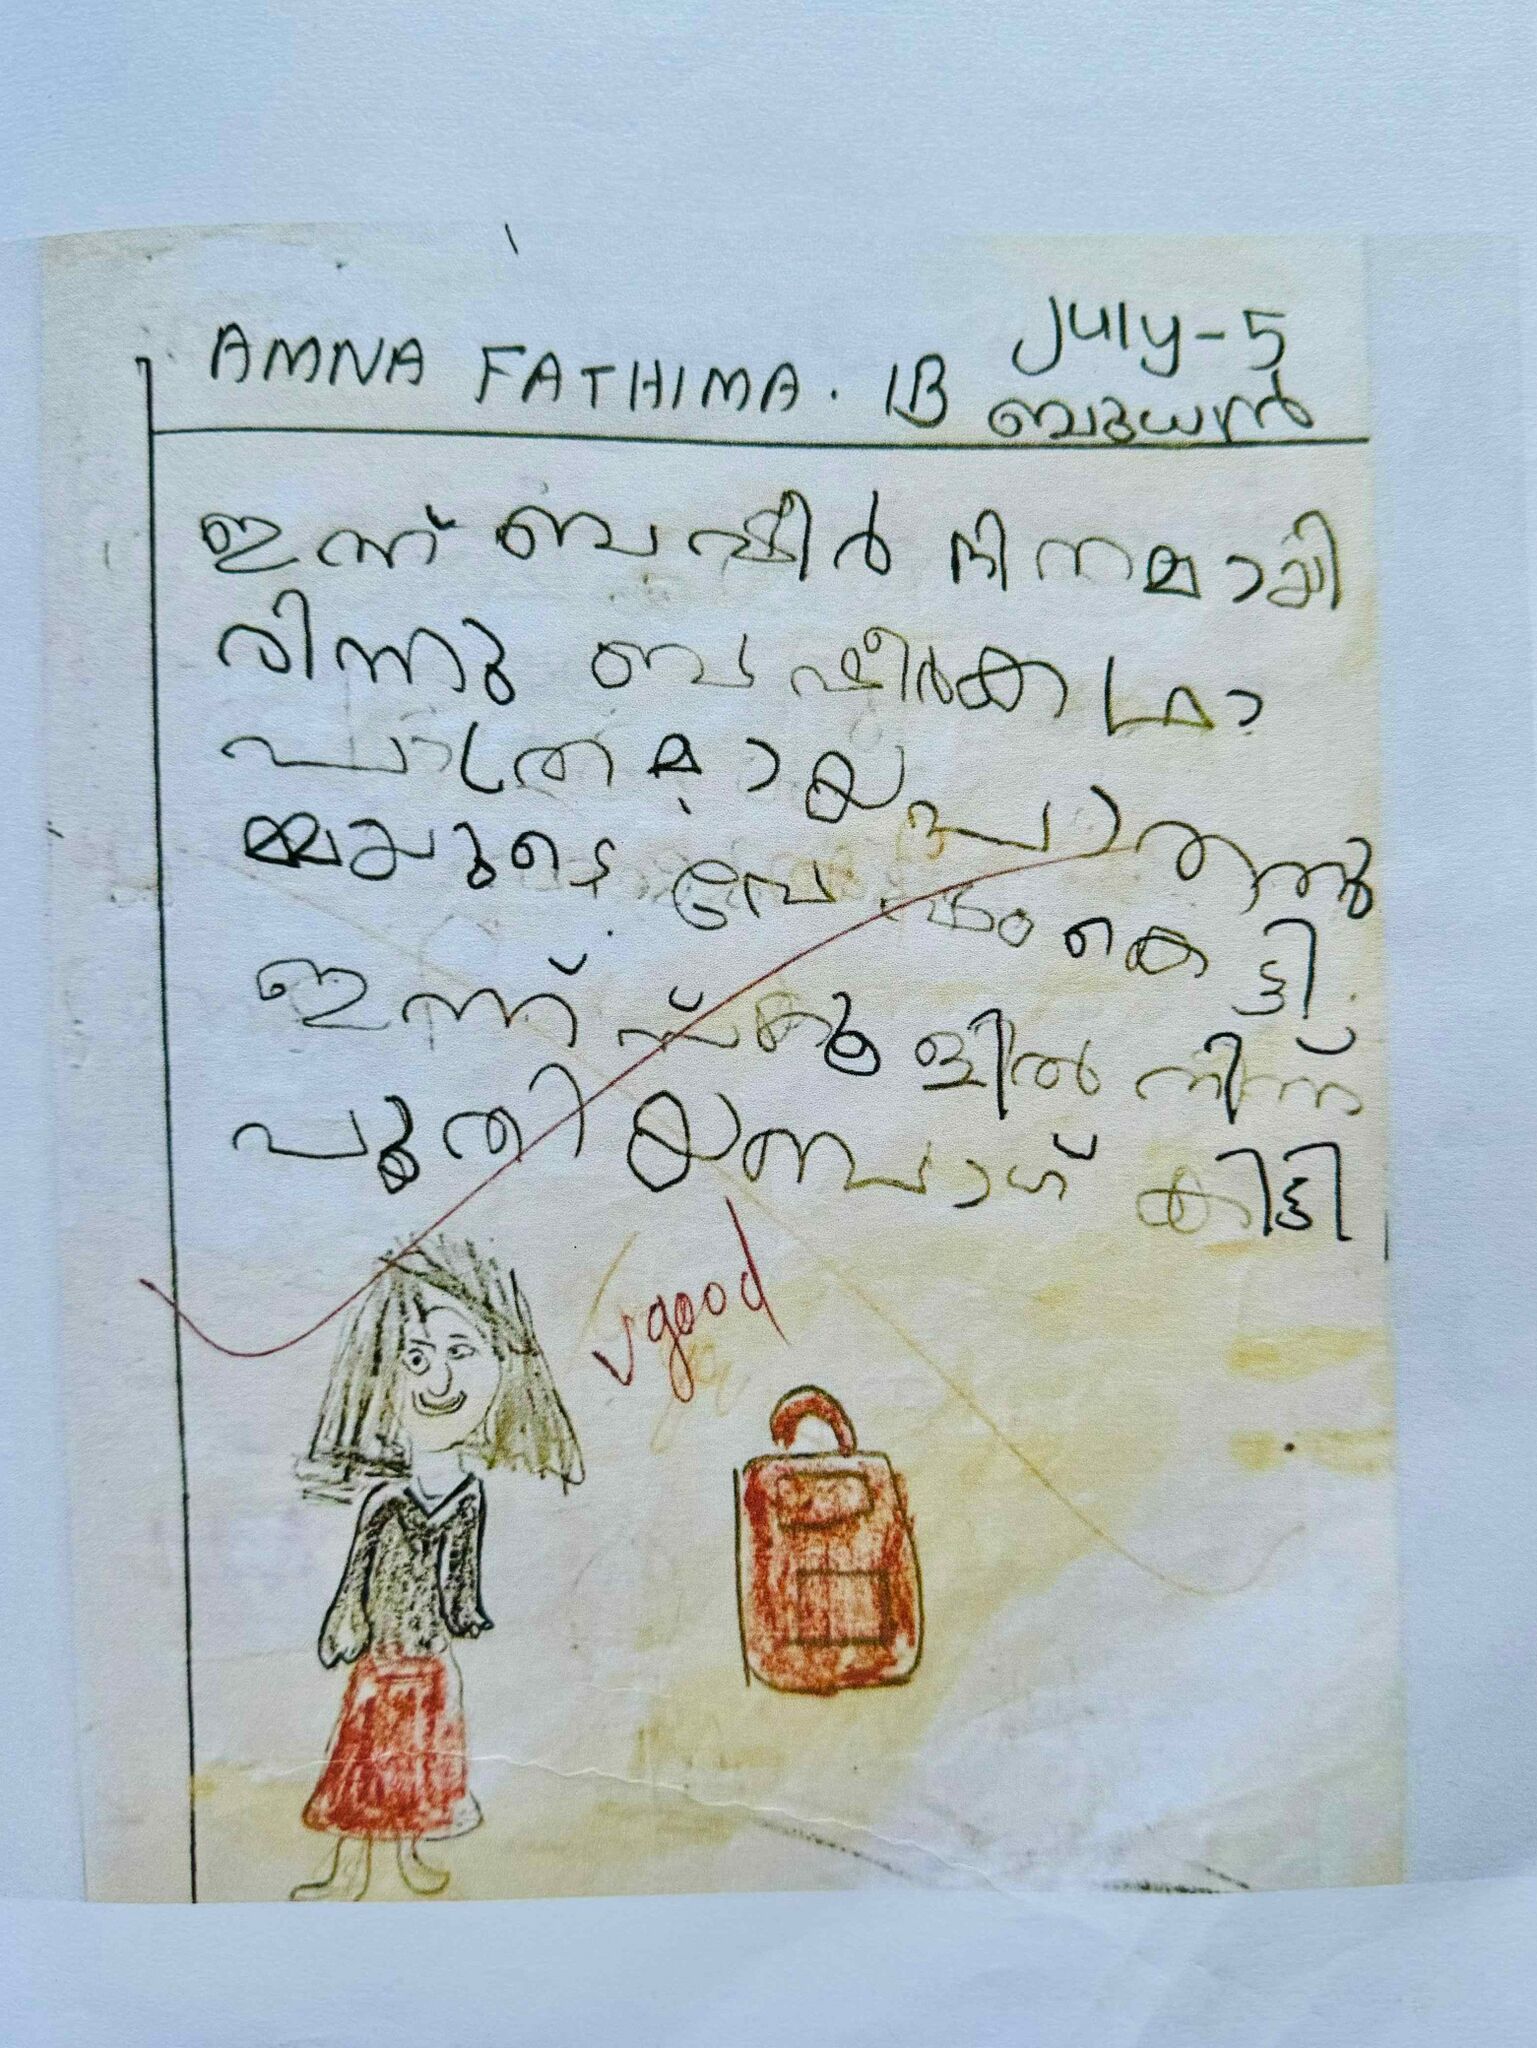 AMNA FATHIMA. 1B July-5
ബുധൻ
ഇന്ന് ബഷീർ ദിനമായി
രിന്നു ബഷീർ
പാത്രമായ പാത്തു
മ്മയുടെ വേഷം കെട്ടി.
ഇന്ന് സ്കൂളിൽ നിന്ന്
പുതിയ ബാഗ് കിട്ടി
v good